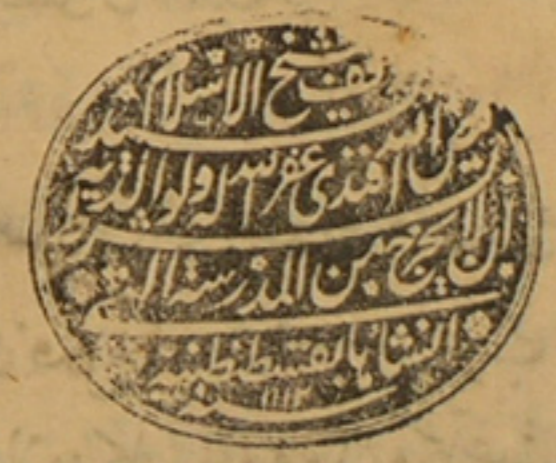 وقف شيخ الاسلام السيد
فيض الله افندى غفر الله له ولوالديه
بشرط أن لا يخرج من المدرسة التى
انشاها بقسطنطنيه
سنه ١١١٢